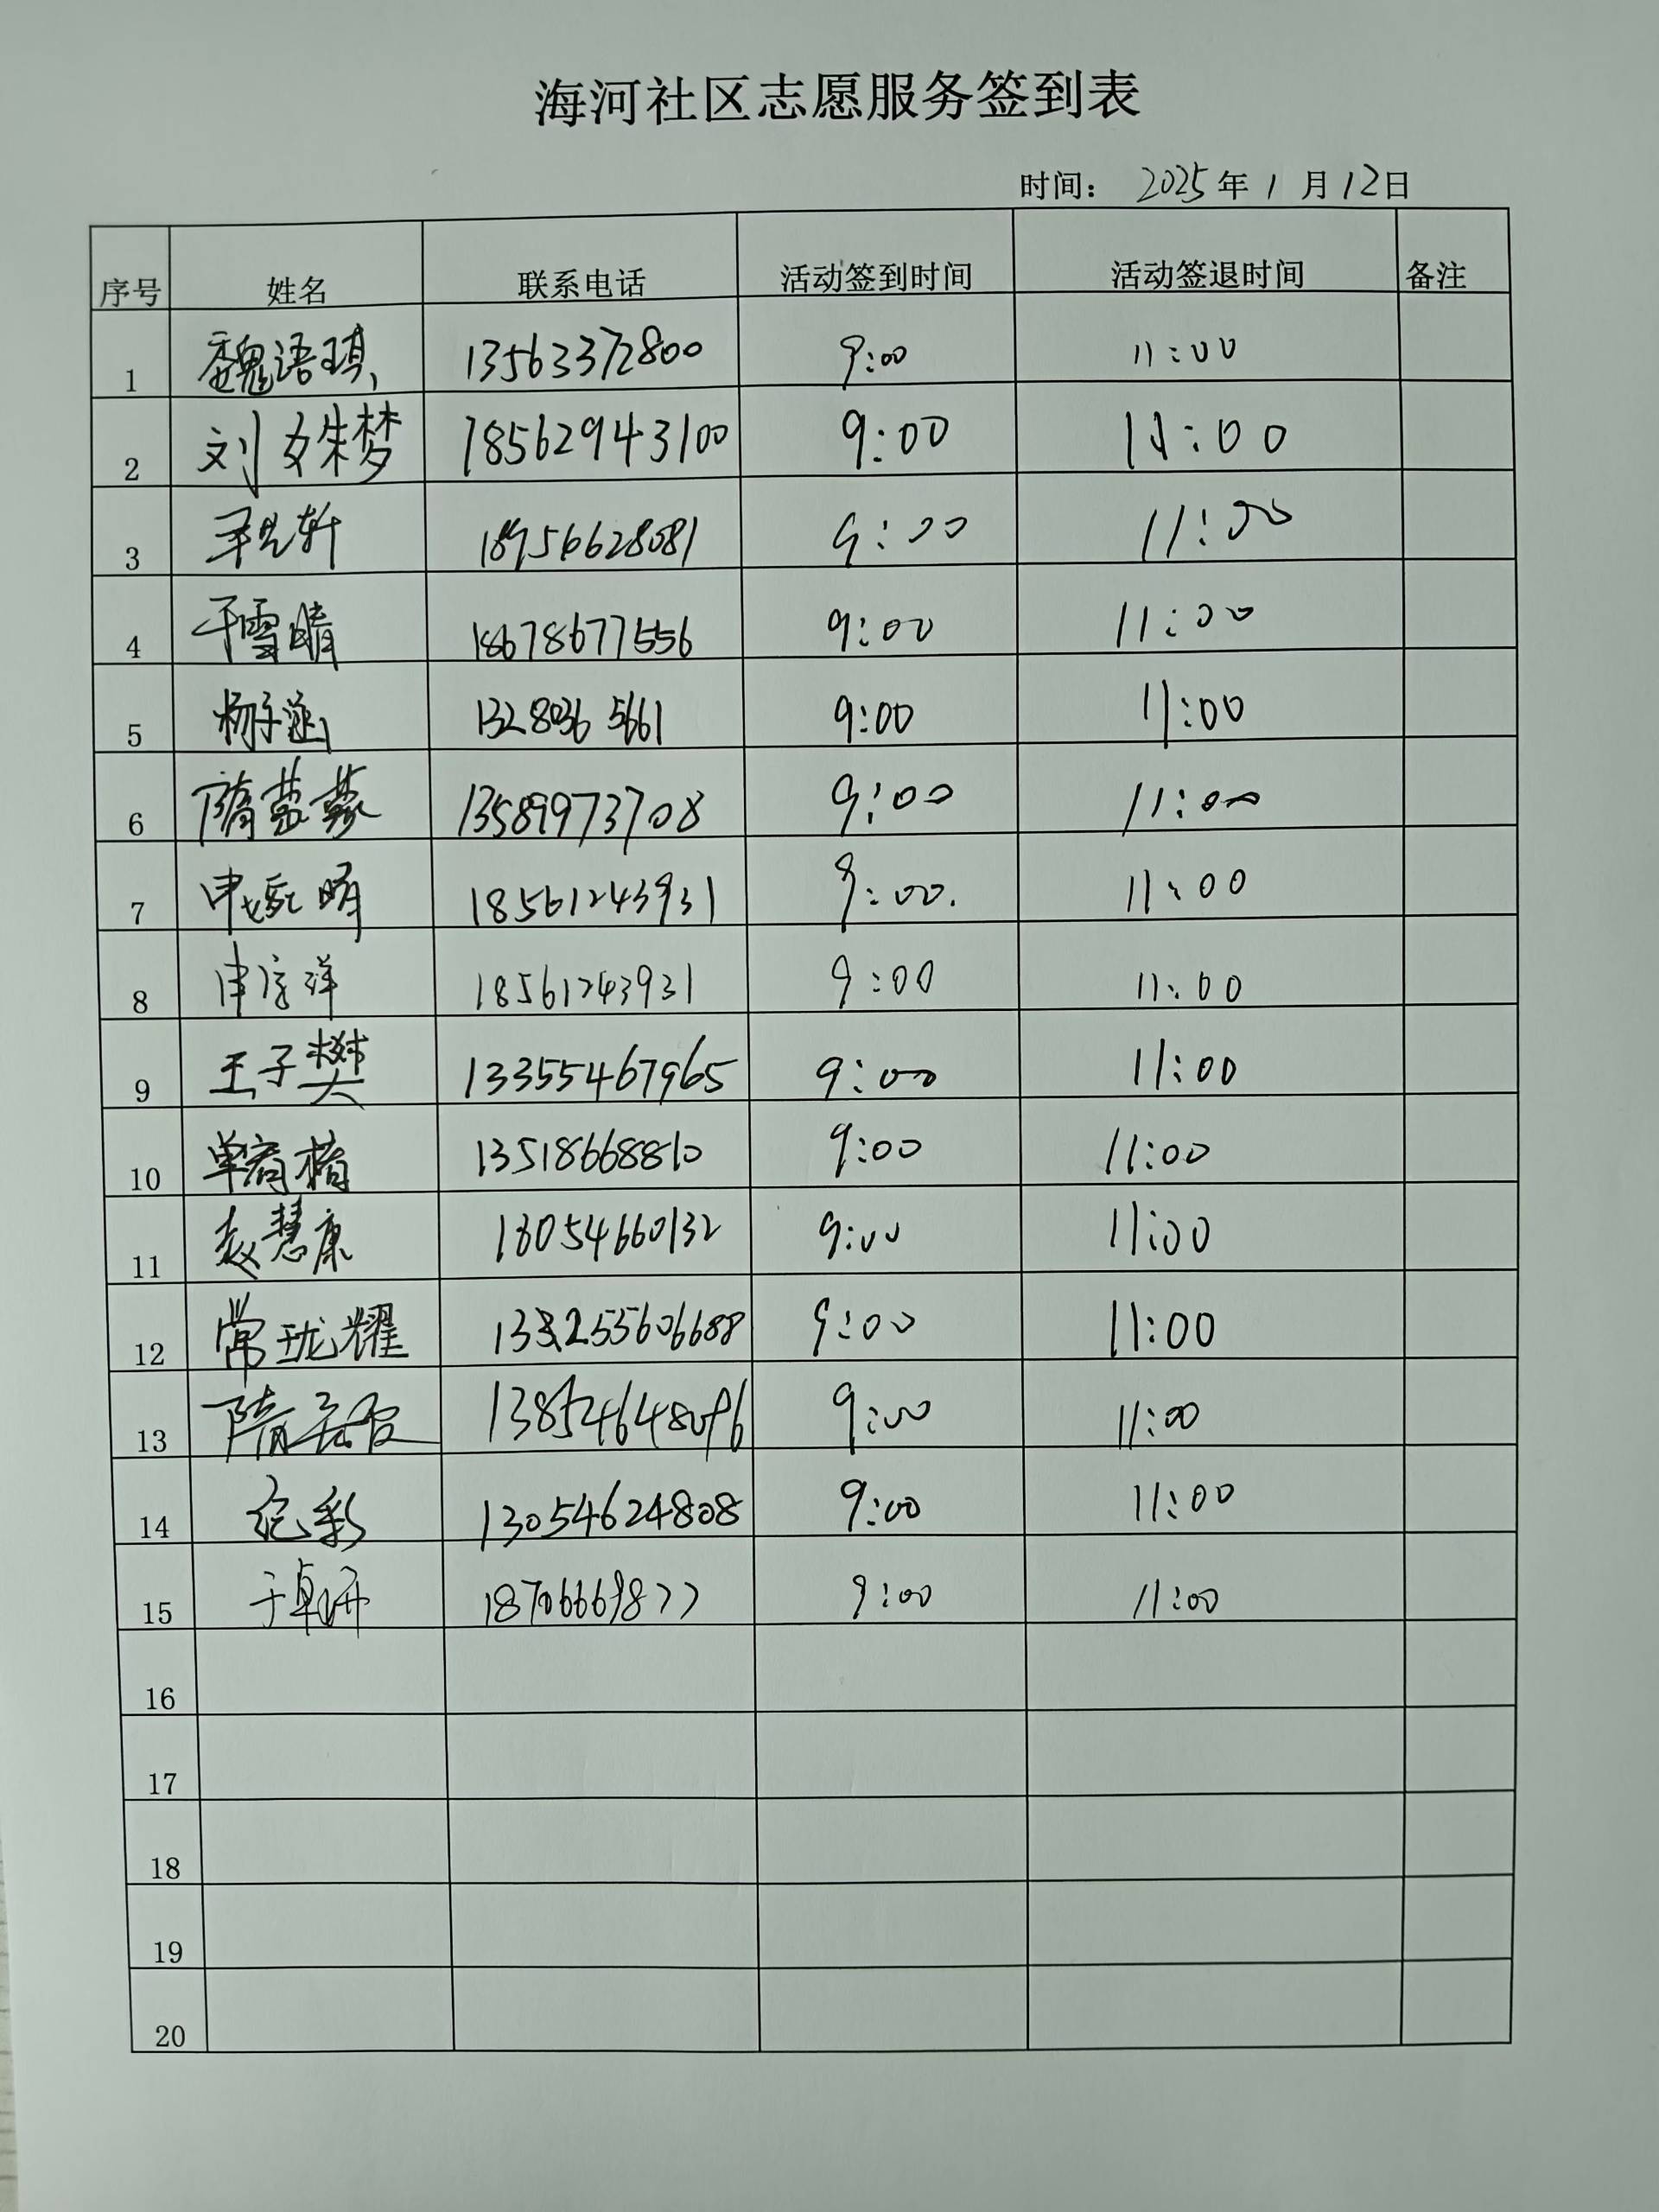 海河社区志愿服务签到表
时间： 2025 年 1 月 12 日
序号 姓名 联系电话 活动签到时间 活动签退时间 备注
1 魏语琪 13563372800 9:00 11:00
2 刘姝梦 18562943100 9:00 11:00
3 18956628081 9:00 11:00
4 于雪晴 18678677556 9:00 11:00
5 杨子涵 9:00 11:00
6 隋蒙蒙 13589973708 9:00 11:00
7 申 明 18561243931 9:00. 11:00
8 申 洋 18561243931 9:00 11:00
9 王子樊 13355467965 9:00 11:00
10 单 楠 13518668810 9:00 11:00
11 赵慧康 13054660132 9:00 11:00
12 常珑耀 9:00 11:00
13 隋 13854648096 9:00 11:00
14 纪彩 13054624808 9:00 11:00
15 于卓妍 18706669877 9:00 11:00
16
17
18
19
20